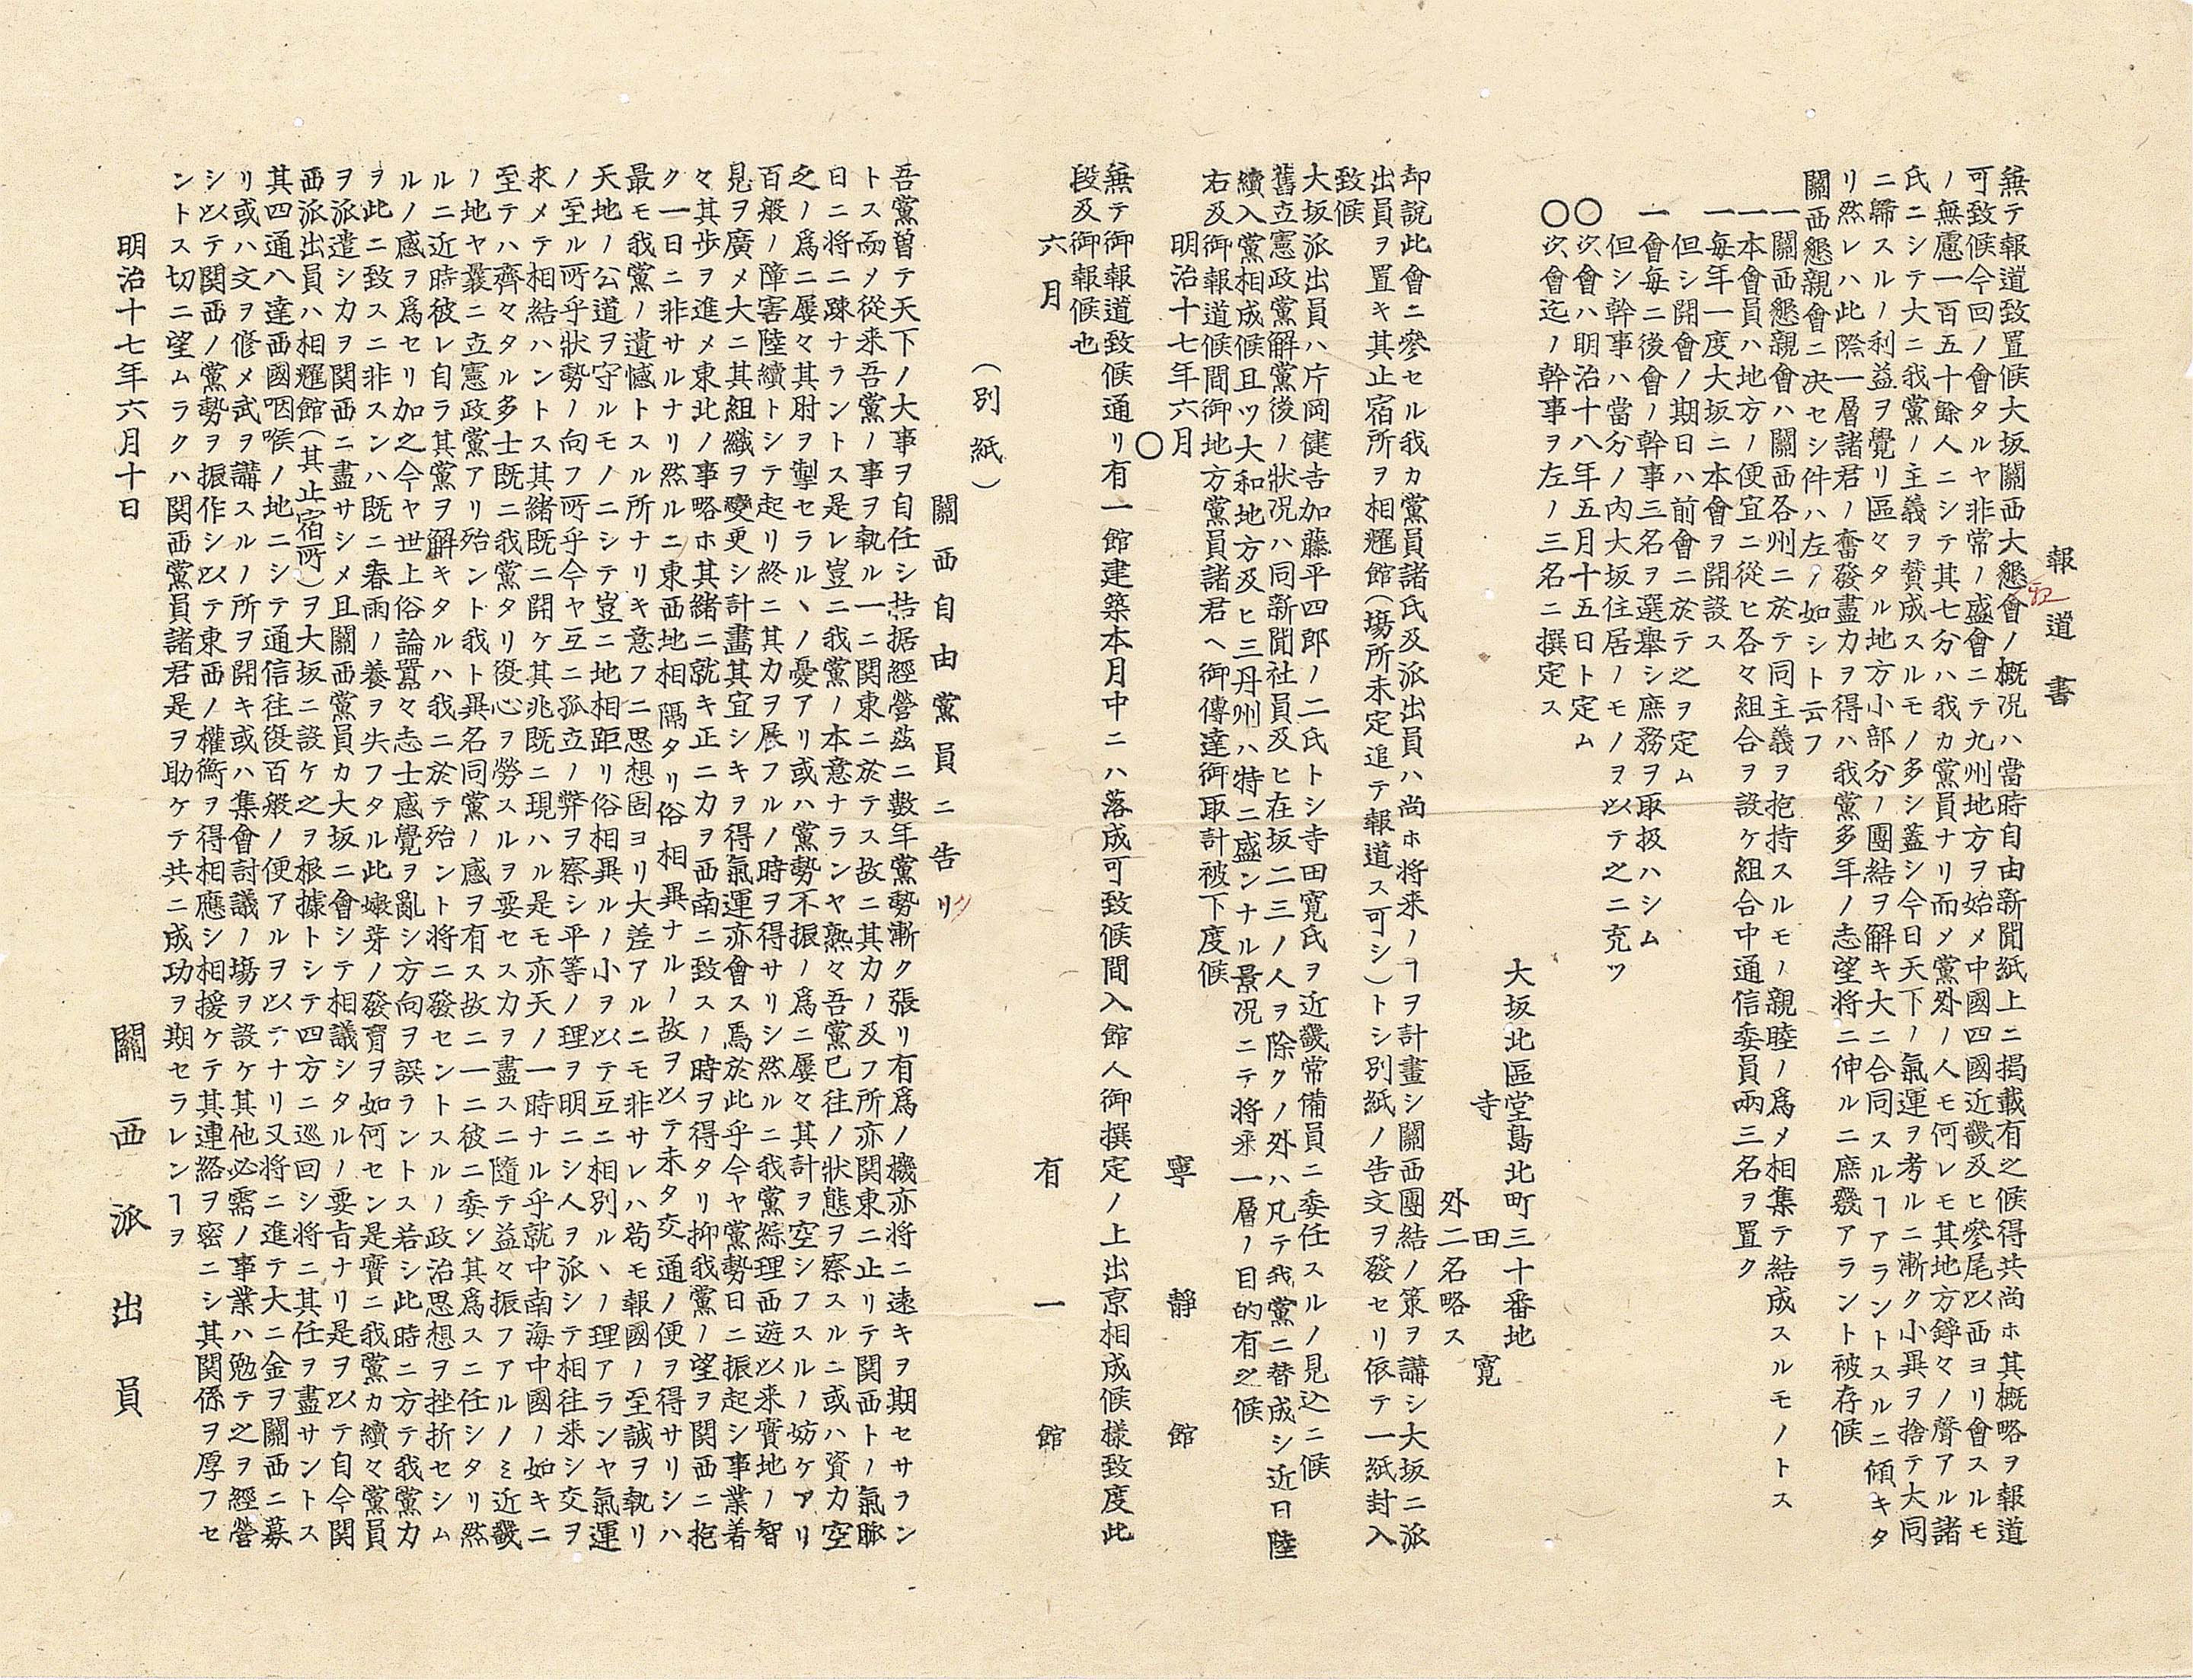 報道書
兼テ報道致置候大坂關西大懇會ノ概况ハ當時自由新聞紙上ニ掲載有之候得共尚ホ其概略ヲ報道
可致候今回ノ會タルヤ非常ノ盛會ニテ九州地方ヲ始メ中國四國近畿及ヒ參尾以西ヨリ會スルモ
ノ無慮一百五十餘人ニシテ其七分ハ我カ黨員ナリ而メ黨外ノ人モ何レモ其地方錚々ノ聲アル諸
氏ニシテ大ニ我黨ノ主義ヲ賛成スルモノ多シ蓋シ今日天下ノ氣運ヲ考ルニ漸ク小異ヲ捨テ大同
ニ歸スルノ利益ヲ覺リ區々タル地方小部分ノ團結ヲ解キ大ニ合同スルヿアラントスルニ傾キタ
リ然レハ此際一層諸君ノ奮發盡力ヲ得ハ我黨多年ノ志望將ニ伸ルニ庶幾アラント被存候
關西懇親會ニ决セシ件ハ左ノ如シト云フ
一關西懇親會ハ關西各州ニ於テ同主義ヲ抱持スルモノ親睦ノ爲メ相集テ結成スルモノトス
一本會員ハ地方ノ便宜ニ從ヒ各々組合ヲ設ケ組合中通信委員兩三名ヲ置ク
一毎年一度大坂ニ本會ヲ開設ス
但シ開會ノ期日ハ前會ニ於テ之ヲ定ム
一會毎ニ後會ノ幹事三名ヲ選舉シ庶務ヲ取扱ハシム
但シ幹事ハ當分ノ内大坂住居ノモノヲ以テ之ニ充ツ
〇次會ハ明治十八年五月十五日ト定ム
〇次會迄ノ幹事ヲ左ノ三名ニ撰定ス
大坂北區堂島北町三十番地
寺田寛
外二名略ス
却說此會ニ參セル我カ黨員諸氏及派出員ハ尚ホ將来ノヿヲ計畫シ關西團結ノ策ヲ講シ大坂ニ派
出員ヲ置キ其止宿所ヲ相輝館(塲所未定追テ報道ス可シ)トシ別紙ノ告文ヲ發セリ依テ一紙封入
致候
大坂派出員ハ片岡健吉加藤平四郎ノ二氏トシ寺田寛氏ヲ近畿常備員ニ委任スルノ見込ニ候
舊立憲政黨解黨後ノ狀况ハ同新聞社員及ヒ在坂二三ノ人ヲ除クノ外ハ凡テ我黨ニ替成シ近日陸
續入黨相成候且ツ大和地方及ヒ三丹州ハ特ニ盛ンナル景况ニテ将来一層ノ目的有之候
右及御報道候間御地方黨員諸君へ御傳達御取計被下度候
明治十七年六月
寧靜館
〇
兼テ御報道致候通リ有一館建築本月中ニハ落成可致候間入館人御撰定ノ上出京相成候樣致度此
段及御報候也
六月
有一館
(別紙)
關西自由黨員ニ告リ
吾黨曽テ天下ノ大事ヲ自任シ拮据經營茲ニ數年黨勢漸ク張リ有爲ノ機亦将ニ速キヲ期セサラン
トス而メ從来吾黨ノ事ヲ執ル一ニ関東ニ於テス故ニ其力ノ及フ所亦関東ニ止リテ関西トノ氣脈
日ニ将ニ疎ナラントス是レ豈ニ我黨ノ本意ナランヤ熟々吾黨已往ノ狀態ヲ察スルニ或ハ資力空
之ノ爲ニ屢々其肘ヲ掣セラルヽノ憂アリ或ハ黨勢不振ノ爲ニ屢々其計ヲ空シフスルノ妨ケアリ
百般ノ障害陸續トシテ起リ終ニ其力ヲ展フルノ時ヲ得サリシ然ルニ我黨綜理西遊以来實地ノ智
見ヲ廣メ大ニ其組織ヲ變更シ計畫其宜シキヲ得氣運亦會ス焉於此乎今ヤ黨勢日ニ振起シ事業着
々其歩ヲ進メ東北ノ事略ホ其緒ニ就キ正ニ力ヲ西南ニ致スノ時ヲ得タリ抑我黨ノ望ヲ関西ニ抱
ク一日ニ非サルナリ然ルニ東西地相隔タリ俗相異ナルノ故ヲ以テ未タ交通ノ便ヲ得サリシハ
最モ我黨ノ遺憾トスル所ナリキ意フニ思想固ヨリ大差アルニモ非サレハ苟モ報國ノ至誠ヲ執リ
天地ノ公道ヲ守ルモノニシテ豈ニ地相距リ俗相異ルノ小ヲ以テ互ニ相別ルヽノ理アランヤ氣運
ノ至ル所乎狀勢ノ向フ所乎今ヤ互ニ孤立ノ弊ヲ察シ平等ノ理ヲ明ニシ人ヲ派シテ相往来シ交ヲ
求メテ相結ハントス其緒既ニ開ケ其兆既ニ現ハル是モ亦天ノ一時ナル乎就中南海中國ノ如キニ
至テハ齊々タル多士既ニ我黨タリ復心ヲ勞スルヲ要セス力ヲ盡スニ隨テ益々振フアルノミ近畿
ノ地ヤ曩ニ立憲政黨アリ殆ント我ト異名同黨ノ感ヲ有ス故ニ一ニ彼ニ委シ其爲スニ任シタリ然
ルニ近時彼レ自ラ其黨ヲ解キタルハ我ニ於テ殆ント將ニ發セントスルノ政治思想ヲ挫折セシム
ルノ感ヲ爲セリ加之今ヤ世上俗論囂々志士感覺ヲ亂シ方向ヲ誤ラントス若シ此時ニ方テ我黨力
ヲ此ニ致スニ非スンハ既ニ春雨ノ養ヲ失フタル此嫩芽ノ發育ヲ如何セン是實ニ我黨カ續々黨員
ヲ派遣シ力ヲ関西ニ盡サシメ且關西黨員カ大坂ニ會シテ相議シタルノ要旨ナリ是ヲ以テ自今関
西派出員ハ相輝館(其止宿所)ヲ大坂ニ設ケ之ヲ根據トシテ四方ニ巡回シ将ニ其任ヲ盡サントス
其四通八達西國咽喉ノ地ニシテ通信往復百般ノ便アルヲ以テナリ又将ニ進テ大ニ金ヲ關西ニ募
リ或ハ文ヲ修メ武ヲ講スルノ所ヲ開キ或ハ集會討議ノ塲ヲ設ケ其他必需ノ事業ハ勉テ之ヲ經營
シ以テ関西ノ黨勢ヲ振作シ以テ東西ノ權衡ヲ得相應シ相援ケテ其連絡ヲ密ニシ其関係ヲ厚フセ
ントス切ニ望ムラクハ関西黨員諸君是ヲ助ケテ共ニ成功ヲ期セラレンヿヲ
明治十七年六月十日
關西派出員